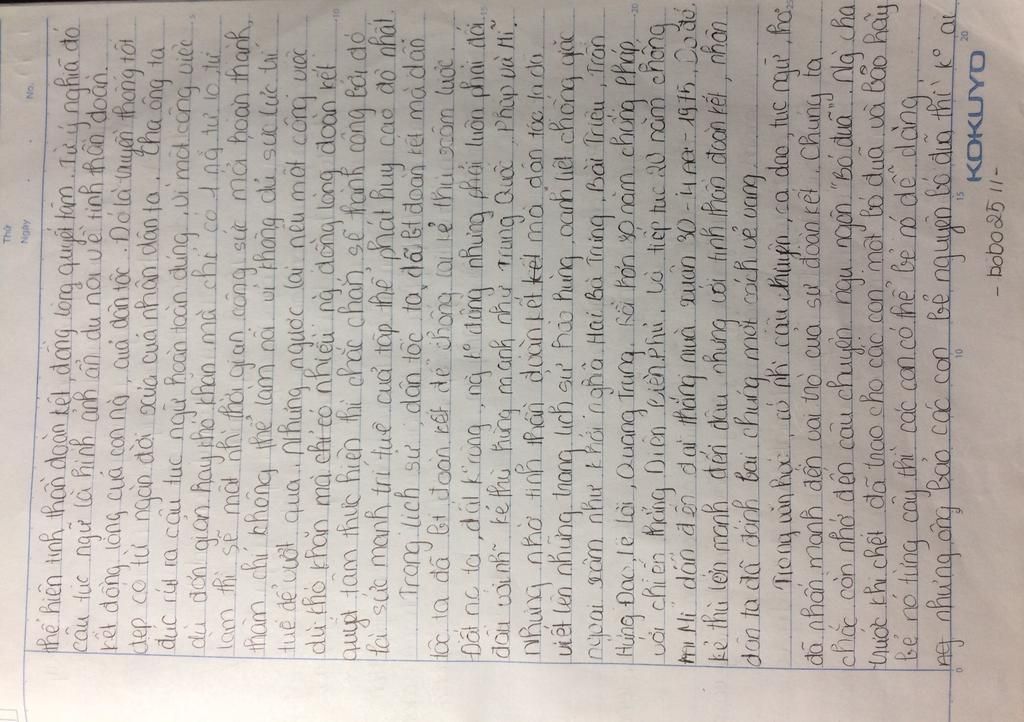 Thứ
Ngày
No.
thể hiện tinh thần đoàn kết, đồng lòng quyết tâm. Từ ý nghĩa đó
câu tục ngữ là hình ảnh ẩn dụ nói về tinh thần đoàn
kết đồng lòng của con ng, của dân tộc. Đó là truyền thống tốt
đẹp có từ ngàn đời xưa của nhân dân ta. Cha ông ta
đúc rút ra câu tục ngữ hoàn toàn đúng, vì một công việc
dù đơn giản hay khó khăn mà chỉ có 1 ng tự lo, tự
làm thì sẽ mất nhì thời gian công sức mới hoàn thành,
thậm chí không thể làm nổi vì không đủ sức lực trí
tuệ để vượt qua. Nhưng ngược lại nếu một công việc
dù khó khăn mà có nhiều ng đồng lòng đoàn kết
quyết tâm thực hiện thì chắc chắn sẽ thành công bởi đó
là sức mạnh trí tuệ của tập thể phát huy cao độ nhất
Trong lịch sử, dân tộc ta đã bt đoàn kết mà dân
tộc ta đã bt đoàn kết để chống lại kẻ thù xâm lược.
Đất nc ta, đất k rộng, ng k đông nhưng phải luôn phải đối
đầu với kẻ thù hùng mạnh như Trung Quốc, Pháp và Mĩ.
Nhưng nhờ tinh thần đoàn kết mà dân tộc ta đã
viết lên những trang lịch sử hào hùng, oanh liệt chống giặc
ngoại xâm như khởi nghĩa Hai Bà Trưng, Bà Triệu, Trần
Hưng Đạo, Lê Lợi, Quang Trung. Rồi hơn 80 năm chống Pháp
với chiến thắng Điện Biên Phủ, và tiếp tục 20 năm chống
Mĩ dẫn đến đại thắng mùa xuân 30-4-1975. Dù đó
kẻ thù lớn mạnh đến đâu nhưng với tinh thần đoàn kết, nhân
dân ta đã đánh bại chúng một cách vẻ vang
Trong văn học, có nhì câu chuyện, ca dao, tục ngữ, họ
đã nhấn mạnh đến vai trò của sự đoàn kết. Chúng ta
chắc còn nhớ đến câu chuyện ngụ ngôn "Bó đũa". Ng cha
trước khi chết đã trao cho các con một bó đũa và bảo hãy
bẻ nó từng cây thì các con có thể bẻ nó dễ dàng
nhưng ông bảo các con bẻ nguyên bó đũa thì k ai
0
5
10
15
20
25
KOKUYO
- bobo2511 -